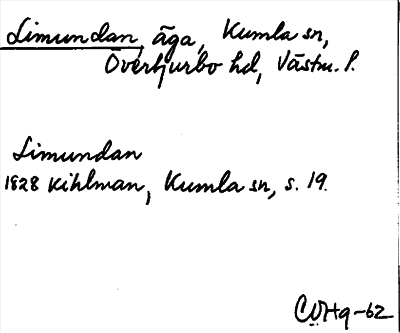 Limundan, äga, Kumla sn,
Övertjurbo hd, Västm. l.
Limundan
1828 Kihlman, Kumla sn, s. 19.
CWHq-62